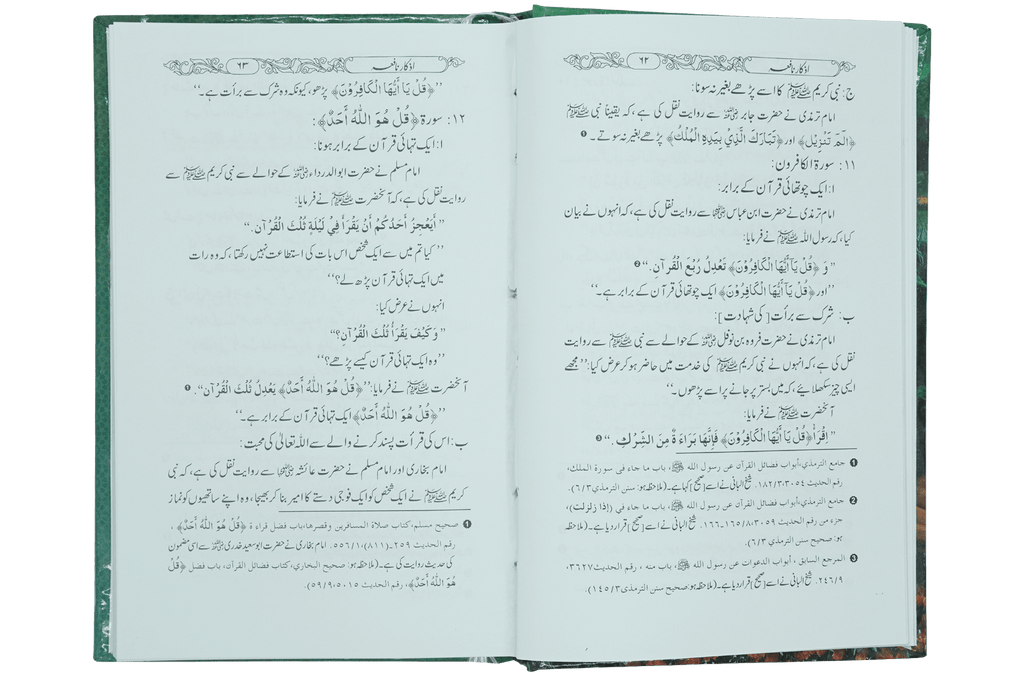 اذکار نافعہ
۶۲
ج: نبی کریم ﷺ کا اسے پڑھے بغیر نہ سونا:
امام ترمذی نے حضرت جابر رضی اللہ عنہ سے روایت نقل کی ہے، کہ یقیناً نبی ﷺ
﴿الٓمّٓ تَنْزِیْل﴾ اور ﴿تَبَارَكَ الَّذِيْ بِيَدِهِ الْمُلْكُ﴾ پڑھے بغیر نہ سوتے۔ ❶
۱۱: سورۃ الکافرون:
ا: ایک چوتھائی قرآن کے برابر:
امام ترمذی نے حضرت ابن عباس رضی اللہ عنہما سے روایت نقل کی ہے، کہ انہوں نے بیان
کیا، کہ رسول اللہ ﷺ نے فرمایا:
”وَ ﴿قُلْ يَآ أَيُّهَا الْكَافِرُوْنَ﴾ تَعْدِلُ رُبُعَ الْقُرآنِ.“ ❷
’’اور ﴿قُلْ يَآ أَيُّهَا الْكَافِرُوْنَ﴾ ایک چوتھائی قرآن کے برابر ہے۔‘‘
ب: شرک سے برأت [کی شہادت]:
امام ترمذی نے حضرت فروہ بن نوفل رضی اللہ عنہ کے حوالے سے نبی ﷺ سے روایت
نقل کی ہے، کہ انہوں نے نبی کریم ﷺ کی خدمت میں حاضر ہو کر عرض کیا: ’’مجھے
ایسی چیز سکھلایئے، کہ میں بستر پر جانے پر اسے پڑھوں۔‘‘
آنحضرت ﷺ نے فرمایا:
”اِقْرَأْ ﴿قُلْ يَا أَيُّهَا الْكَافِرُوْنَ﴾ فَإِنَّهَا بَرَاءَةٌ مِنَ الشِّرْكِ.“ ❸
❶ جامع الترمذي، أبواب فضائل القرآن عن رسول الله ﷺ، باب ما جاء في سورة الملك،
رقم الحديث ٣٠٥٤، ١٨٢/٣. شیخ البانی نے اسے [صحیح] کہا ہے۔ (ملاحظہ ہو: سنن الترمذي ٦/٣).
❷ جامع الترمذي، أبواب فضائل القرآن عن رسول الله ﷺ، باب ما جاء في ﴿إذا زلزلت﴾،
جزء من رقم الحديث ٣٠٥٩، ١٦٥/٨-١٦٦. شیخ البانی نے اسے [صحیح] قرار دیا ہے۔ (ملاحظہ
ہو: صحيح سنن الترمذي ٦/٣).
❸ المرجع السابق، أبواب الدعوات عن رسول الله ﷺ، باب منه، رقم الحديث ٣٦٢٧،
٢٤٦/٩. شیخ البانی نے اسے [صحیح] قرار دیا ہے۔ (ملاحظہ ہو: صحيح سنن الترمذي ١٤٥/٣).
اذکار نافعہ
۶۳
’’﴿قُلْ يَا أَيُّهَا الْكَافِرُوْنَ﴾ پڑھو، کیونکہ وہ شرک سے برأت ہے۔‘‘
۱۲: سورۃ ﴿قُلْ هُوَ اللّٰهُ أَحَدٌ﴾:
ا: ایک تہائی قرآن کے برابر ہونا:
امام مسلم نے حضرت ابوالدرداء رضی اللہ عنہ کے حوالے سے نبی کریم ﷺ سے
روایت نقل کی ہے، کہ آنحضرت ﷺ نے فرمایا:
”أَيَعْجِزُ أَحَدُكُمْ أَنْ يَقْرَأَ فِيْ لَيْلَةٍ ثُلُثَ الْقُرْآنِ.“
’’کیا تم میں سے ایک شخص اس بات کی استطاعت نہیں رکھتا، کہ وہ رات
میں ایک تہائی قرآن پڑھ لے؟‘‘
انہوں نے عرض کیا:
”وَكَيْفَ يَقْرَأُ ثُلُثَ الْقُرْآنِ؟“
’’وہ ایک تہائی قرآن کیسے پڑھے؟‘‘
آنحضرت ﷺ نے فرمایا: ’’﴿قُلْ هُوَ اللّٰهُ أَحَدٌ﴾ يَعْدِلُ ثُلُثَ الْقُرْآنِ“. ❶
’’﴿قُلْ هُوَ اللّٰهُ أَحَدٌ﴾ ایک تہائی قرآن کے برابر ہے۔‘‘
ب: اس کی قرأت پسند کرنے والے سے اللہ تعالیٰ کی محبت:
امام بخاری اور امام مسلم نے حضرت عائشہ رضی اللہ عنہا سے روایت نقل کی ہے، کہ نبی
کریم ﷺ نے ایک شخص کو ایک فوجی دستے کا امیر بنا کر بھیجا، وہ اپنے ساتھیوں کو نماز
❶ صحيح مسلم، كتاب صلاة المسافرين وقصرها، باب فضل قراءة ﴿قُلْ هُوَ اللّٰهُ أَحَدٌ﴾،
رقم الحديث ٢٥٩-(٨١١)، ٥٥٦/١. امام بخاری نے حضرت ابوسعید خدری رضی اللہ عنہ سے اسی مضمون
کی حدیث روایت کی ہے۔ (ملاحظہ ہو: صحيح البخاري، كتاب فضائل القرآن، باب فضل ﴿قُلْ
هُوَ اللّٰهُ أَحَدٌ﴾، رقم الحديث ٥٠١٥، ٥٩/٩).